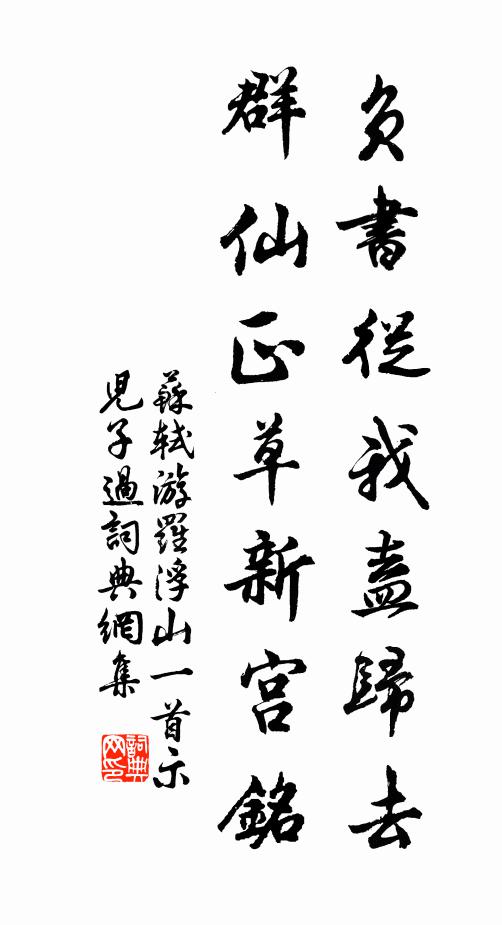 負書從我盍歸去
群仙正草新宮銘
蘇軾游羅浮山一首示
兒子過詞典網集
詞典
网印